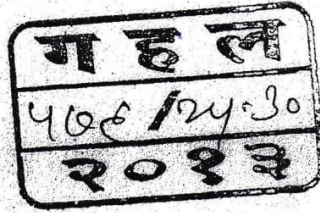 ग ह ल
५७९/२५-३०
२०१३